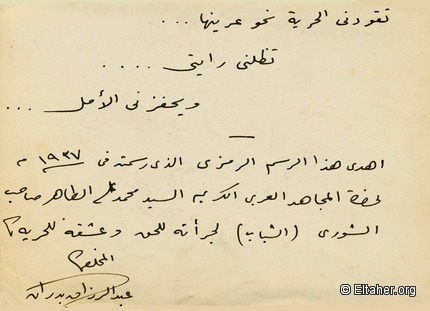 تقودنى الحرية نحو عرينها ...
تظلنى رايتى ....
ويحفزنى الأمل ...
اهدى هذا الرسم الرمزى الذى رسمته فى ١٩٣٧ م
لحضرة المجاهد العربى الكريم السيد محمد على الطاهر صاحب
الشورى (الشباب) لجرأته للحق وعشقه للحرية
المخلص
عبد الرزاق بدران
© Eltaher.org